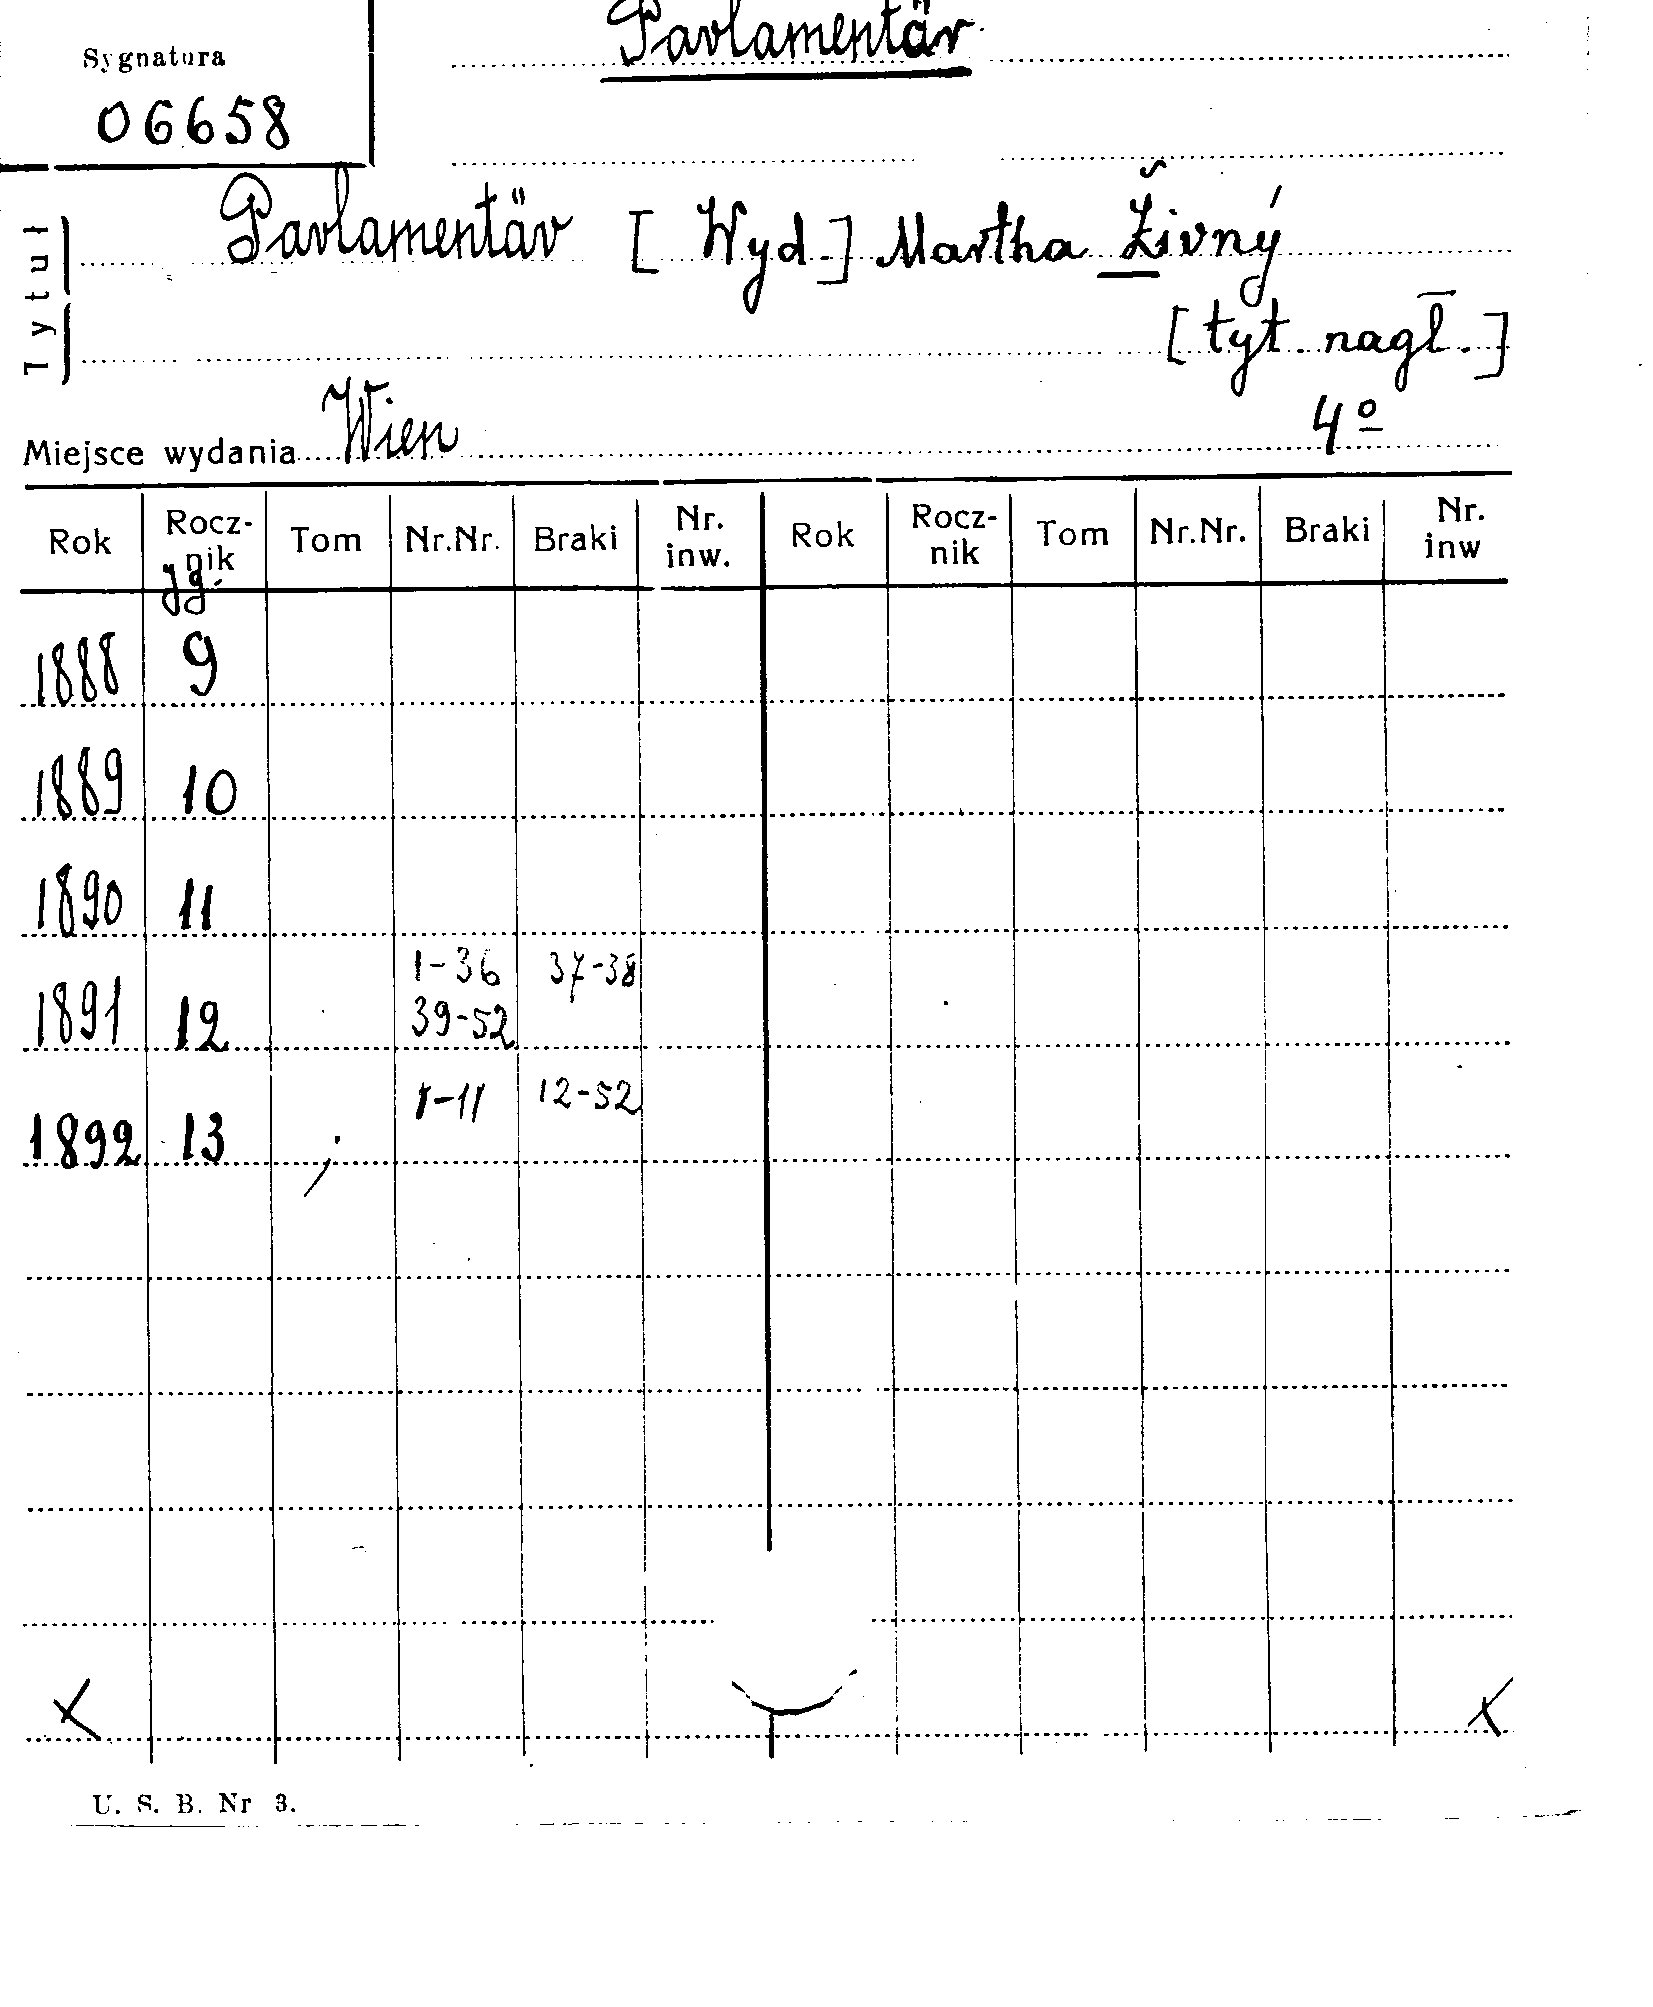 Parlamentär
Sygnatura
06658
Tytuł
Parlamentär [Wyd.] Martha Živný
[tyt. nagł.]
Miejsce wydania Wien 4º
Rok Rocz-nik Tom Nr.Nr. Braki Nr. inw. Rok Rocz-nik Tom Nr.Nr. Braki Nr. inw
Jg.
1888 9
1889 10
1890 11
1891 12 1-36 37-38
39-52
1892 13 1-11 12-52
U. S. B. Nr 3.